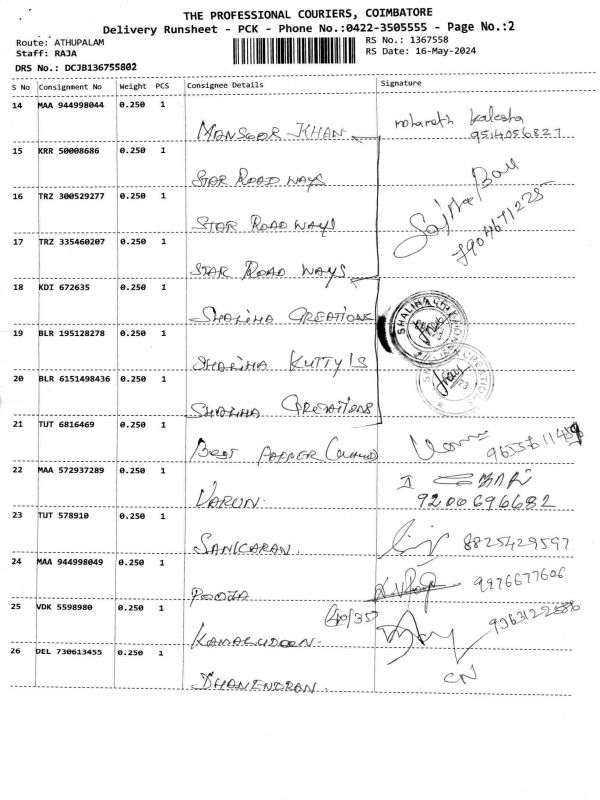 THE PROFESSIONAL COURIERS, COIMBATORE
Delivery Runsheet - PCK - Phone No.:0422-3505555 - Page No.:2
Route: ATHUPALAM
RS No.: 1367558
Staff: RAJA
RS Date: 16-May-2024
DRS No.: DCJB136755802
S No Consignment No Weight PCS Consignee Details Signature
14 MAA 944998044 0.250 1
MANSOOR KHAN
9514056827
15 KRR 50008686 0.250 1
STAR ROAD WAYS
16 TRZ 300529277 0.250 1
STAR ROAD WAYS
7904671225
17 TRZ 335460207 0.250 1
STAR ROAD WAYS
18 KDI 672635 0.250 1
SHALIHA CREATIONS
19 BLR 195128278 0.250 1
SHALIHA KUTTYIS
20 BLR 6151498436 0.250 1
SHALIHA CREATIONS
21 TUT 6816469 0.250 1
BEST
22 MAA 572937289 0.250 1
VARUN.
9200696682
23 TUT 578910 0.250 1
SANKARAN.
8825429597
24 MAA 944998049 0.250 1
POOJA
9976677606
25 VDK 5598980 0.250 1
KAMALUDEEN.
26 DEL 730613455 0.250 1
CN
DHANENDRAN.